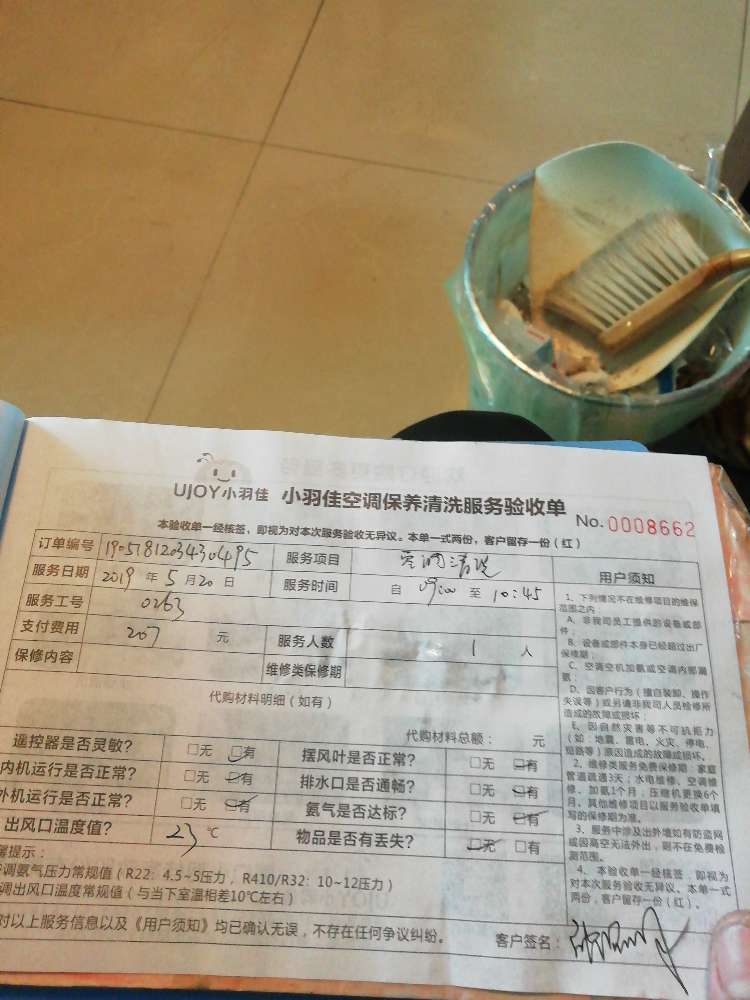 UJOY小羽佳 小羽佳空调保养清洗服务验收单 No. 0008662
本验收单一经核签,即视为对本次服务验收无异议。本单一式两份,客户留存一份(红)
订单编号 1905181203430495 服务项目 空调清洗
服务日期 2019 年 5 月 20 日 服务时间 自 09:00 至 10:45
服务工号 0263
支付费用 207 元 服务人数 1 人
保修内容 维修类保修期
代购材料明细(如有)
代购材料总额: 元
遥控器是否灵敏? □无 □有 摆风叶是否正常? □无 □有
内机运行是否正常? □无 □有 排水口是否通畅? □无 □有
外机运行是否正常? □无 □有 氨气是否达标? □无 □有
出风口温度值? 23 ℃ 物品是否有丢失? □无 □有
提示:
调氨气压力常规值(R22:4.5~5压力,R410/R32:10~12压力)
调出风口温度常规值(与当下室温相差10℃左右)
对以上服务信息以及《用户须知》均已确认无误,不存在任何争议纠纷。 客户签名:
用户须知
1、下列情况不在维修项目的维保
范围之内
A、非我司员工提供的设备或部
件;
B、设备或部件本身已经超过出厂
保修期;
C、空调空机加氨或空调内部漏
氨;
D、因客户行为(擅自装卸、操作
失误等)或另请非我司人员检修所
造成的故障或损坏;
E、因自然灾害等不可抗拒力
(如:地震、雷电、火灾、停电、
短路等)原因造成的故障或损坏。
2、维修类服务免费保修期:家庭
管道疏通3天;水电维修、空调维
修、加氨1个月;压缩机更换6个
月。其他维修项目以服务验收单填
写的保修期为准。
3、服务中涉及出外墙如有防盗网
或因高空无法外出,则不在免费检
测范围。
4、本验收单一经核签,即视为
对本次服务验收无异议。本单一式
两份,客户留存一份(红)。